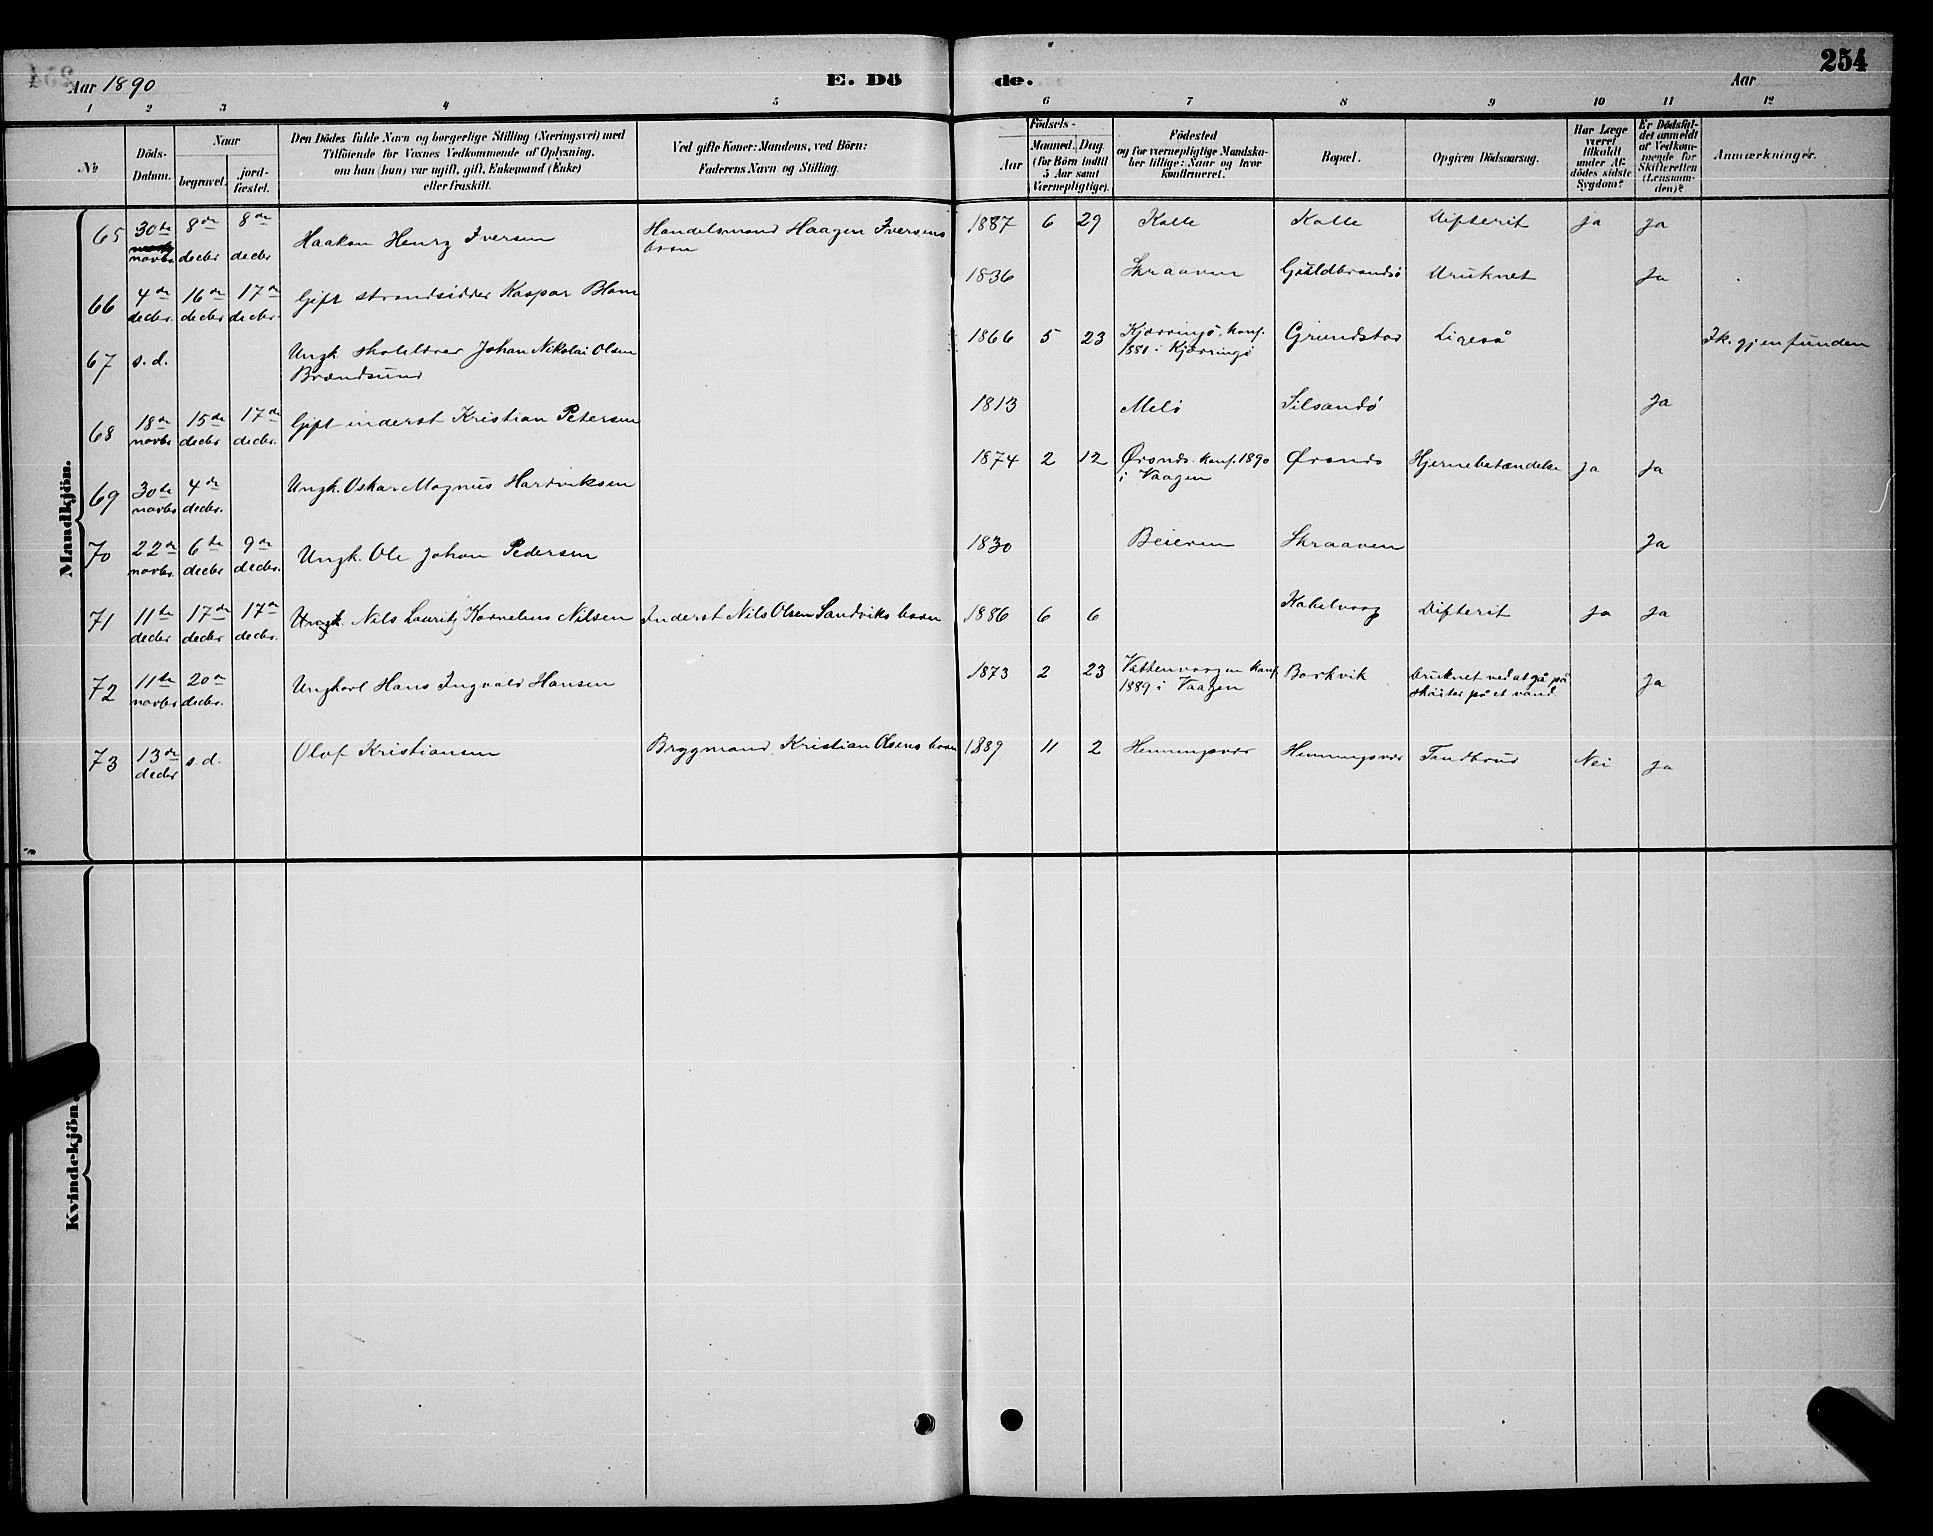 254
Aar 1890
E. Dö
de.
Aar
1 2 3 4 5 6 7 8 9 10 11 12
No
Döds-
Datum.
Naar
begravet.
jord-
fæstet.
Den Dödes fulde Navn og borgerlige Stilling (Næringsvei) med
Tilföiende for Voxnes Vedkommende af Oplysning,
om han (hun) var ugift, gift, Enkemand (Enke)
eller fraskilt.
Ved gifte Koner: Mandens, ved Börn:
Faderens Navn og Stilling.
Födsels-
Aar
Maaned. Dag.
(for Börn indtil
5 Aar samt
Værnepligtige).
Födested
og for værnepligtige Mandska-
ber tillige: Naar og hvor
konfirmeret.
Bopæl.
Opgiven Dödsaarsag.
Har Læge
været
tilkaldt
under Af-
dödes sidste
Sygdom?
Er Dödsfal-
det anmeldt
af Vedkom-
mende for
Skifteretten
(Lensman-
den)?
Anmærkninger.
Mandkjön.
65 30te novbr. 8de decbr 8de decbr Haakon Henry Iversen Handelsmand Haagen Iversens barn 1887 6 29 Kalle Kalle Difterit Ja Ja
66 4de decbr. 16de decbr 17de decbr. Gift strandsidder Kaspar Blom 1836 Skraaven Guldbrandsø Druknet Ja
67 s.d. Ungk. Johan Nikolai Olsen Brændsund 1866 5 23 Kjærringø, konf. 1881 i Kjærringø Grundstad Ligeså Ik. gjenfunden
68 18de novbr 15de decbr 17de decbr. Gift inderst Kristian Petersen 1813 Melø Silsandø Ja
69 30te novbr 4de decbr. Ungk. Oskar Magnus Hardviksen 1874 2 12 Ørsnes. konf. 1890 i Vaagen Ørsnes Hjernebetændelse Ja Ja
70 22de novbr. 6te decbr 9de decbr. Ungk. Ole Johan Pedersen 1830 Beieren Skraaven Ja
71 11te decbr 17de decbr 17de decbr. Ungk. Nils Lauritz Kornelius Nilsen Inderst Nils Olsen Sandviks barn 1886 6 6 Kabelvaag Difterit Ja Ja
72 11te novbr 20de decbr. Ungkarl Hans Ingvald Hansen 1873 2 23 Vattenvaagen konf. 1889 i Vaagen Barkvik Druknet ved at gå på skøiter på et vand Ja
73 13de decbr s.d. Olaf Kristiansen Bryggmand Kristian Olsens barn 1889 11 2 Henningsvær Henningsvær Tandbrud Nei Ja
Kvindekjön.